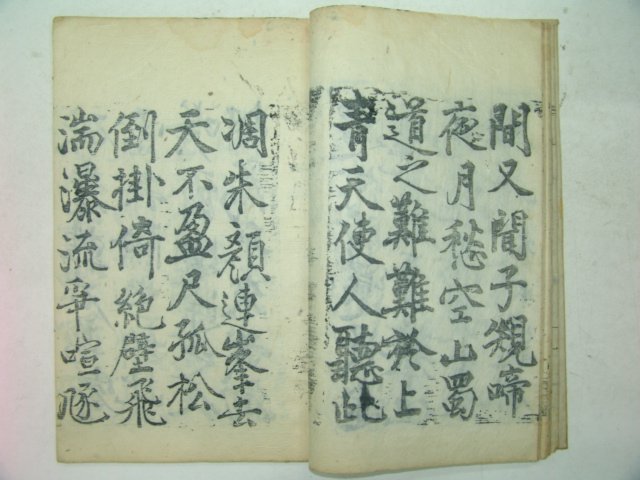 間又聞子規啼
夜月愁空山蜀
道之難難於上
青天使人聽此
凋朱顔連峯去
天不盈尺孤松
倒掛倚絶壁飛
湍瀑流爭喧豗